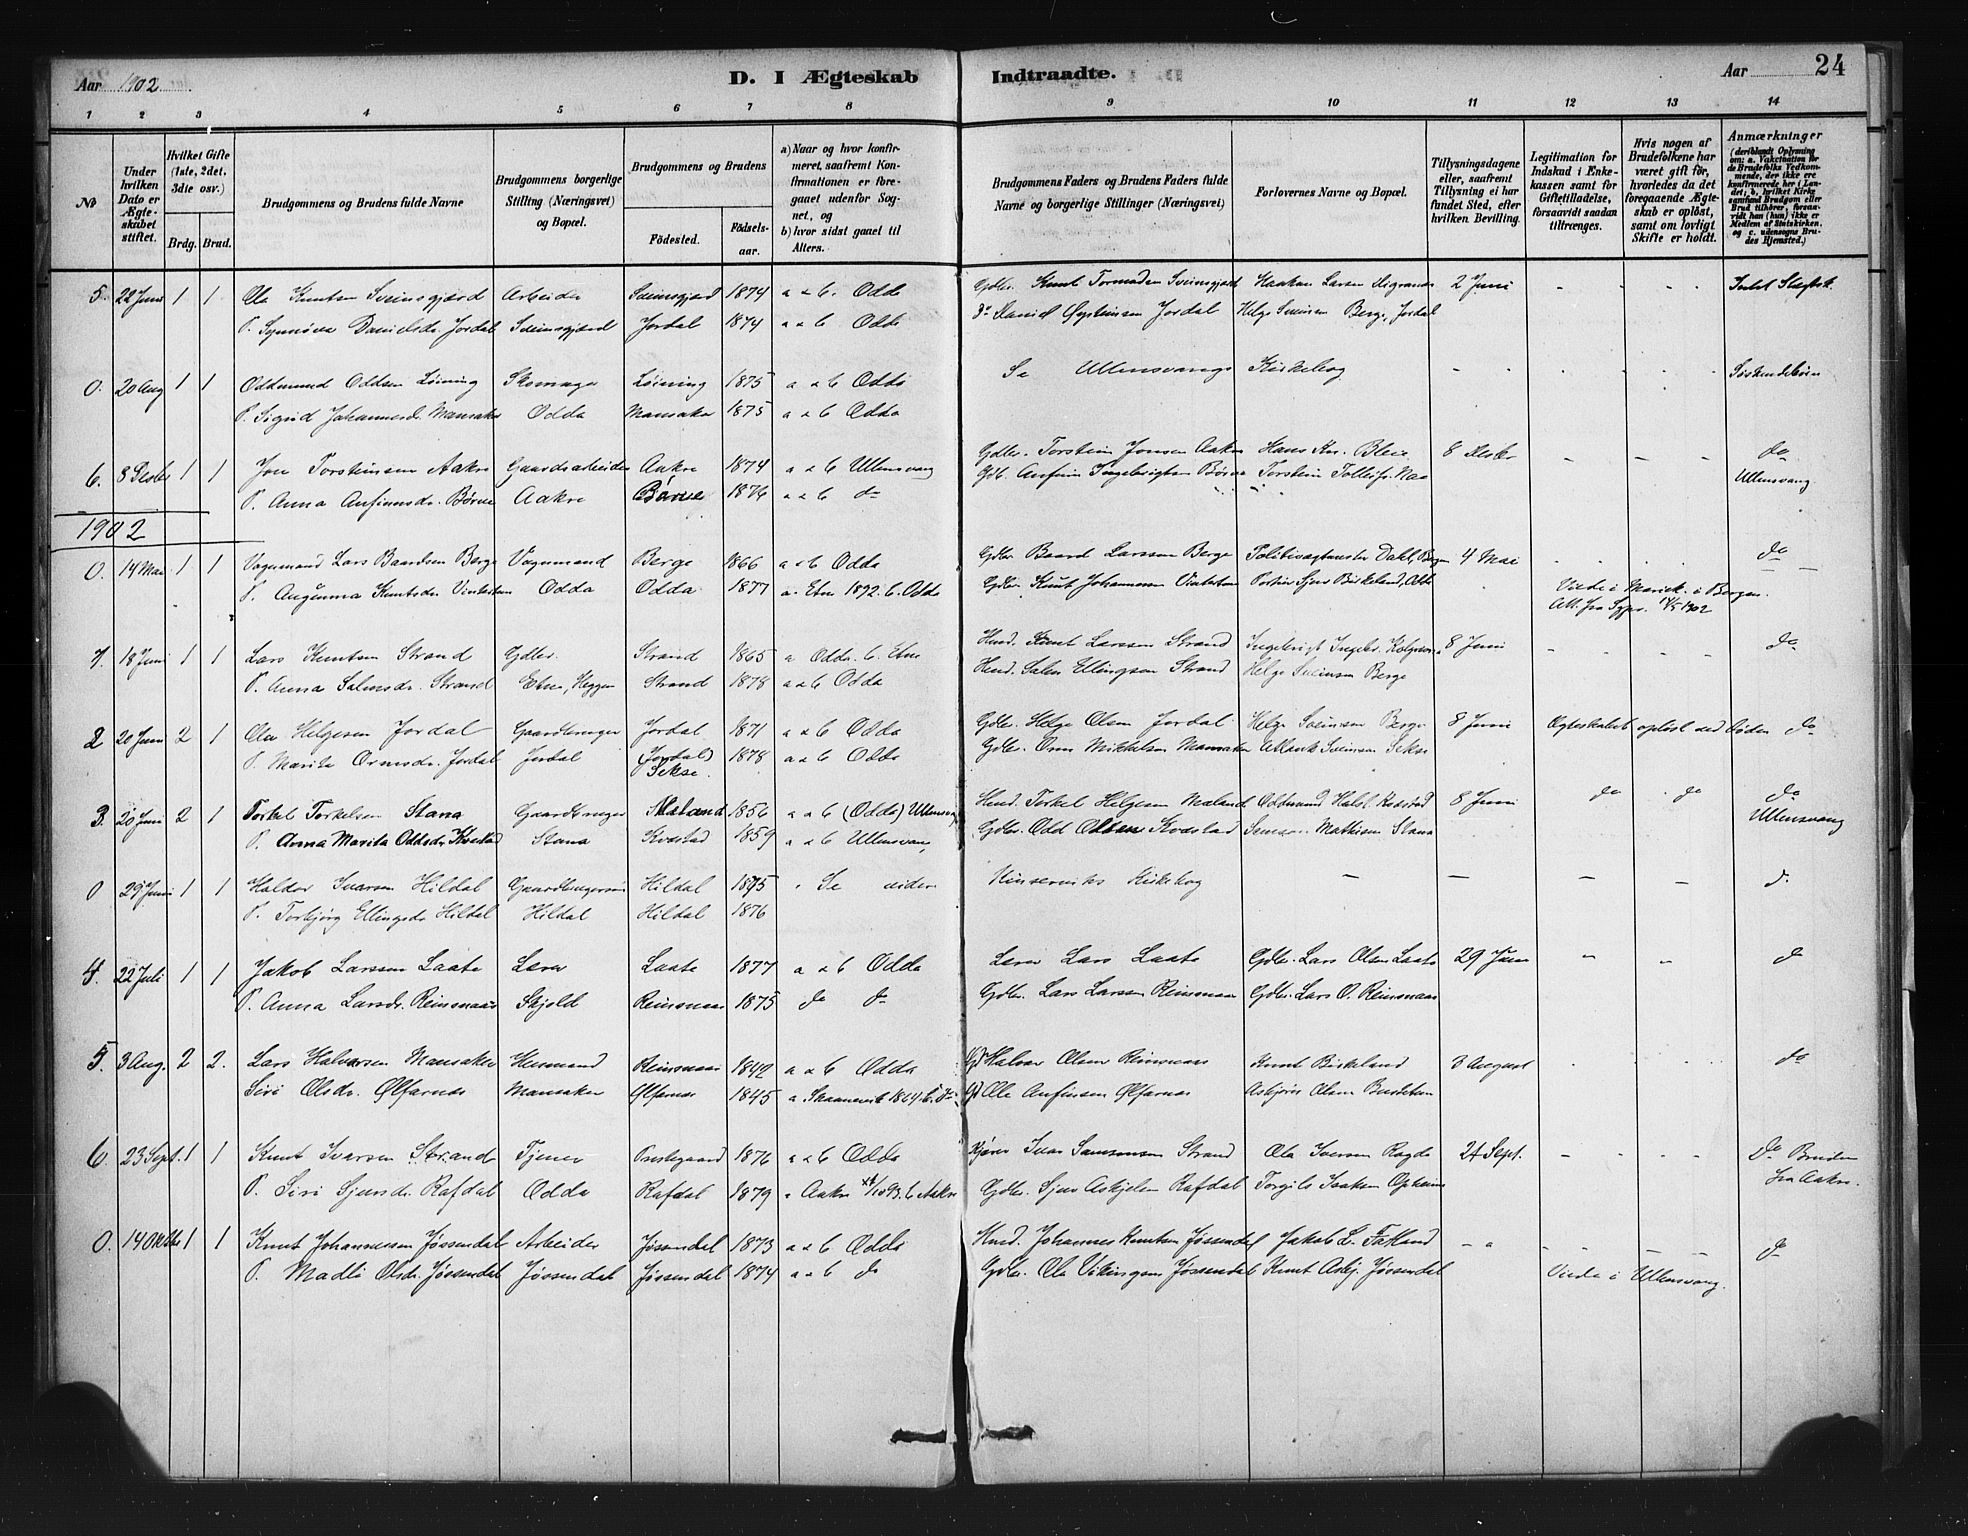 Aar 1902
D. I Ægteskab Indtraadte.
Aar
24
1 2 3 4 5 6 7 8 9 10 11 12 13 14
No
Under hvilken Dato er Ægteskabet stiftet.
Hvilket Gifte (1ste, 2det, 3die osv.)
Brdg. Brud.
Brudgommens og Brudens fulde Navne
Brudgommens borgerlige Stilling (Næringsvei) og Bopæl.
Brudgommens og Brudens
Födested.
Födselsaar.
a) Naar og hvor konfirmeret, saafremt Konfirmationen er foregaaet udenfor Sognet, og
b) hvor sidst gaaet til Alters.
Brudgommens Faders og Brudens Faders fulde Navne og borgerlige Stillinger (Næringsvei)
Forlovernes Navne og Bopæl.
Tillysningsdagene eller, saafremt Tillysning ei har fundet Sted, efter hvilken Bevilling.
Legitimation for Indskud i Enkekassen samt for Giftetilladelse, forsaavidt saadan tiltrænges.
Hvis nogen af Brudefolkene har været gift før, hvorledes da det foregaaende Ægteskab er oplöst, samt om lovligt Skifte er holdt.
Anmærkninger (deriblandt Oplysning om: a. Vakcination for de Brudefolks Vedkommende, der ikke ere konfirmerede her (Landet, b. hvilket Kirkesamfund Brudgom eller Brud tilhører, forsaavidt han (hun) ikke er Medlem af Statskirken, og c. udensogns Brudes Hjemsted.)
5. 22 Juni 1 1 Ola Knutsen Sveinsgjerd Arbeider Sveinsgjerd 1874 a & b Odda Gdbr. Knut Tormodsen Sveinsgjerd Haakon Larsen 2 Juni - - -
P. Synnöva Danielsdr. Jordal Sveinsgjerd Jordal 1874 a & b Odda do Daniel Øysteinsen Jordal Helge Sveinsen Berge, Jordal
0. 20 Aug 1 1 Oddmund Oddsen Løining Skomager Løining 1875 a & b Odda Se Ullensvangs Kirkebog - - - Søskendebörn
P. Sigrid Johannesd. Mansaker Odda Mansaker 1875 a & b Odda
6. 8 Desbr 1 1 Jon Torsteinsen Aakre Gaardsarbeider Aakre 1874 a & b Ullensvang Gdbr. Torstein Jonsen Aakre Hans Kn. Bleie 8 Desbr - - - do
P. Anna Anfinnsdr. Børve Aakre Børve 1876 a & b do Gdb. Anfinn Ingebrigtsen Børve Torstein Tollefs. Ullensvang
1902
0. 14 Mai 1 1 Vognmand Lars Baardsen Berge Vognmand Berge 1866 a & b Odda Gdbr. Baard Larsen Berge Politivagtmester Dahl, Bergen 4 Mai - - do
P. Augunna Knutsdr. Vintertun Odda Odda 1877 a. Etne 1892. b. Odda Gdbr. Knut Johannesen Vintertun Portier Sjur Birkland, Viede i Mariek. i Bergen.
Att. fra Sgpr. 14/5 1902
1. 18 Juni 1 1 Lars Knutsen Strand Gdbr. Strand 1865 a Odda. b. Etne Husd. Knut Larsen Strand Ingebrigt Ingebr. 8 Juni - - - do
P. Anna Salmsdr. Strand Etne, Strand 1878 a & b Odda Husd. Ellingsen Strand Helge Sveinsen Berge
2 20 Juni 2 1 Ola Helgesen Jordal Gaardbruger Jordal 1871 a & b Odda Gdbr. Helge Olsen Jordal Helge Sveinsen Berge 8 Juni Ægteskabet oplöst ved Döden do
P. Marita Ormsdr. Jordal Jordal (Jordal) Sekse. 1878 a & b Odda Gdbr. Orm Mikkelsen Mansaker Sveinsen Sekse
3. 20 Juni 2 1 Torkel Torkelsen Stana Gaardbruger Maland 1856 a & b (Odda) Ullensvang Husd. Torkel Helgesen Maland Oddmund Halst. 8 Juni do do do
P. Anna Marita Oddsdr. Kvestad Stana Kvestad 1859 a & b Ullensvang Gdbr. Odd Kvestad Mathisen Stana Ullensvang
0 29 Juni 1 1 Haldor Ivarsen Hildal Gaardbrugersön Hildal 1875 Se siden Kinserviks Kirkebog - - - - do
P. Torbjørg Ellingsdr. Hildal Hildal Hildal 1876
4. 22 Juli 1 1 Jakob Larsen Laate Lærer Laate 1877 a & b Odda Lærer Lars Laate Gdbr. Lars Olsen Laate 29 Juni - - do
P. Anna Larsdr. Reinsnaas Skjold Reinsnaas 1875 do do Gdbr. Lars Larsen Reinsnaas Gdbr. Lars O. Reinsnaas
5. 3 Aug. 2 2. Lars Halvorsen Mansaker Husmand Reinsnaas 1842 a & b Odda Halvor Olsen Reinsnaas Knut Birkland 3 August do
Siri Olsdr. Ølfarnes Mansaker Ølfarnes 1845 a Skaanevik Ole Anfinsen Ølfarnes Asbjörn Olsen
6. 23 Sept. 1 1 Knut Ivarsen Strand Tjener Prestegaard 1876 a & b Odda Ivar Samsonsen Strand Ola Iversen Ragde 24 Sept. - - - do Bruden fra Aakre.
P. Siri Sjursdr. Rafdal Odda Rafdal 1879 Aakre b Aakre Gdbr. Sjur Askjelsen Rafdal Torgils Isaksen Opheim
0. 14 Oktbr 1 1 Knut Johannesen Jøssendal Arbeider Jøssendal 1873 a & b Odda Husd. Johannes Knutsen Jøssendal Jakob L. Fatland - - - do
P. Madli Olsdr. Jøssendal Jøssendal Jøssendal 1874 a & b do Gdbr. Ola Vikingsen Jøssendal Knut Asbj. Jøssendal Viede i Ullensvang.